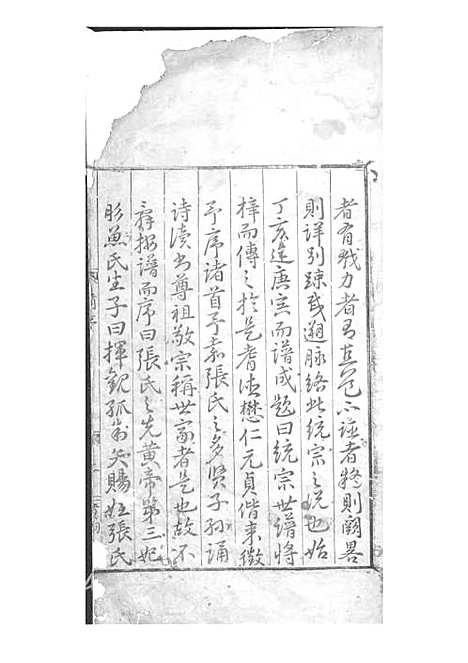 者有戮力者有真見不誣者將則闕畧
則詳別踈或遡脉絡此統宗之說也始
丁亥迄庚寅而譜成題曰統宗世譜將
梓而傳之於是耆德懋仁元貞偕来徵
予序諸首予素張氏之多賢子孫誦
詩讀書尊祖敬宗稱世家者是也故不
辞按譜而序曰張氏之先黄帝第三妃
彤魚氏生子曰揮觀弧制矢賜姓張氏